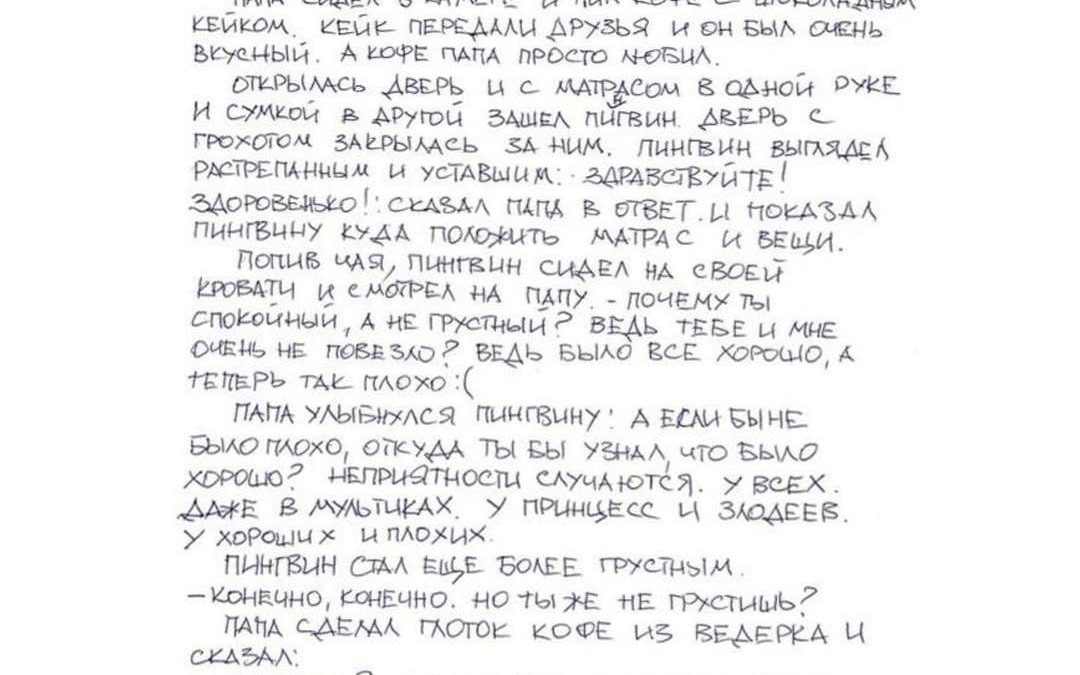 ПАПА СИДЕЛ В КАМЕРЕ И ПИЛ КОФЕ С ШОКОЛАДНЫМ
КЕЙКОМ. КЕЙК ПЕРЕДАЛИ ДРУЗЬЯ И ОН БЫЛ ОЧЕНЬ
ВКУСНЫЙ. А КОФЕ ПАПА ПРОСТО ЛЮБИЛ.
ОТКРЫЛАСЬ ДВЕРЬ И С МАТРАСОМ В ОДНОЙ РУКЕ
И СУМКОЙ В ДРУГОЙ ЗАШЕЛ ПИНГВИН. ДВЕРЬ С
ГРОХОТОМ ЗАКРЫЛАСЬ ЗА НИМ. ПИНГВИН ВЫГЛЯДЕЛ
РАСТРЕПАННЫМ И УСТАВШИМ: - ЗДРАВСТВУЙТЕ!
ЗДОРОВЕНЬКО!: СКАЗАЛ ПАПА В ОТВЕТ. И ПОКАЗАЛ
ПИНГВИНУ КУДА ПОЛОЖИТЬ МАТРАС И ВЕЩИ.
ПОПИВ ЧАЯ, ПИНГВИН СИДЕЛ НА СВОЕЙ
КРОВАТИ И СМОТРЕЛ НА ПАПУ. - ПОЧЕМУ ТЫ
СПОКОЙНЫЙ, А НЕ ГРУСТНЫЙ? ВЕДЬ ТЕБЕ И МНЕ
ОЧЕНЬ НЕ ПОВЕЗЛО? ВЕДЬ БЫЛО ВСЕ ХОРОШО, А
ТЕПЕРЬ ТАК ПЛОХО :(
ПАПА УЛЫБНУЛСЯ ПИНГВИНУ: А ЕСЛИ БЫ НЕ
БЫЛО ПЛОХО, ОТКУДА ТЫ БЫ УЗНАЛ, ЧТО БЫЛО
ХОРОШО? НЕПРИЯТНОСТИ СЛУЧАЮТСЯ. У ВСЕХ.
ДАЖЕ В МУЛЬТИКАХ. У ПРИНЦЕСС И ЗЛОДЕЕВ.
У ХОРОШИХ И ПЛОХИХ.
ПИНГВИН СТАЛ ЕЩЕ БОЛЕЕ ГРУСТНЫМ.
- КОНЕЧНО, КОНЕЧНО. НО ТЫ ЖЕ НЕ ГРУСТИШЬ?
ПАПА СДЕЛАЛ ГЛОТОК КОФЕ ИЗ ВЕДЕРКА И
СКАЗАЛ: